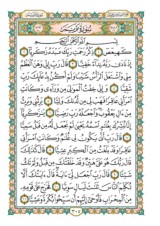 سورة مريم
بسم الله الرحمن الرحيم
كهيعص ذكر رحمت ربك عبده زكريا
إذ نادى ربه نداء خفيا قال رب إني وهن العظم
مني واشتعل الرأس شيبا ولم أكن بدعائك رب
شقيا وإني خفت الموالي من وراءي وكانت
امرأتي عاقرا فهب لي من لدنك وليا يرثني ويرث
من آل يعقوب واجعله رب رضيا يا زكريا إنا
نبشرك بغلام اسمه يحيى لم نجعل له من قبل سميا
قال رب أنى يكون لي غلام وكانت امرأتي
عاقرا وقد بلغت من الكبر عتيا قال كذلك قال
ربك هو علي هين وقد خلقتك من قبل ولم تك
شيئا قال رب اجعل لي آية قال آيتك ألا
تكلم الناس ثلاث ليال سويا فخرج على قومه
من المحراب فأوحى إليهم أن سبحوا بكرة وعشيا